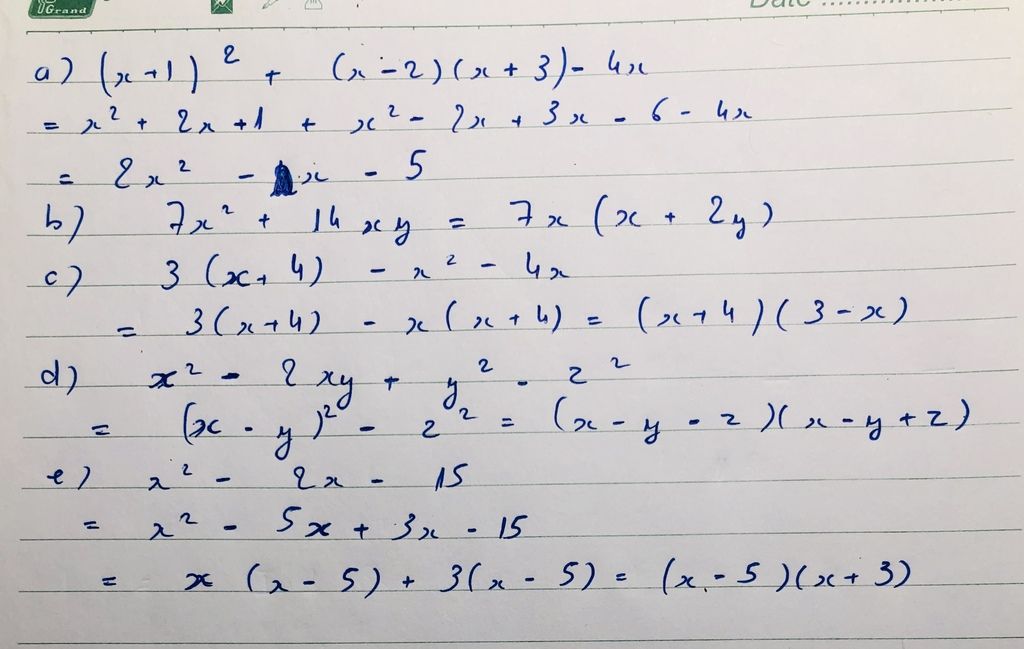 Grand
Date ..................
a) (x+1)² + (x-2)(x+3)-4x
= x² + 2x+1 + x² - 2x + 3x - 6 - 4x
= 2x² - x - 5
b) 7x² + 14xy = 7x (x + 2y)
c) 3 (x+4) - x² - 4x
= 3(x+4) - x(x+4) = (x+4)(3-x)
d) x² - 2xy + y² - z²
= (x-y)² - z² = (x-y-z)(x-y+z)
e) x² - 2x - 15
= x² - 5x + 3x - 15
= x (x-5) + 3(x-5) = (x-5)(x+3)